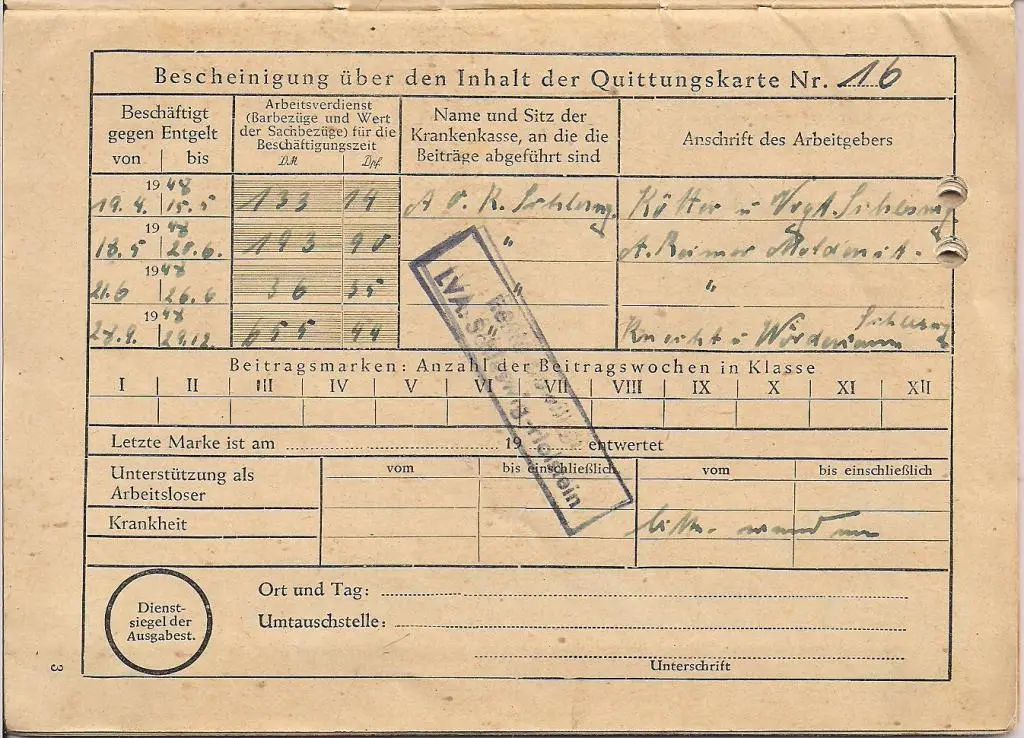 Bescheinigung über den Inhalt der Quittungskarte Nr. 16
Beschäftigt gegen Entgelt
von bis
Arbeitsverdienst
(Barbezüge und Wert
der Sachbezüge) für die
Beschäftigungszeit
DM Dpf
Name und Sitz der
Krankenkasse, an die die
Beiträge abgeführt sind
Anschrift des Arbeitgebers
1948
19.4. 15.5 133 14 A O.K. Schleswg. Kötter u Vogt. Schleswg
1948
18.5 20.6. 193 90 " A. Reimer
1948
21.6 26.6 36 35 " "
1948
28.9. 29.12. 655 44 " Knecht u Wördemann Schleswg
Beitragsmarken: Anzahl der Beitragswochen in Klasse
I II III IV V VI VII VIII IX X XI XII
Letzte Marke ist am 19 entwertet
vom bis einschließlich vom bis einschließlich
Unterstützung als
Arbeitsloser
Krankheit
LVA. Schleswig-Holstein
Ort und Tag:
Umtauschstelle:
Dienst-
siegel der
Ausgabest.
Unterschrift
3